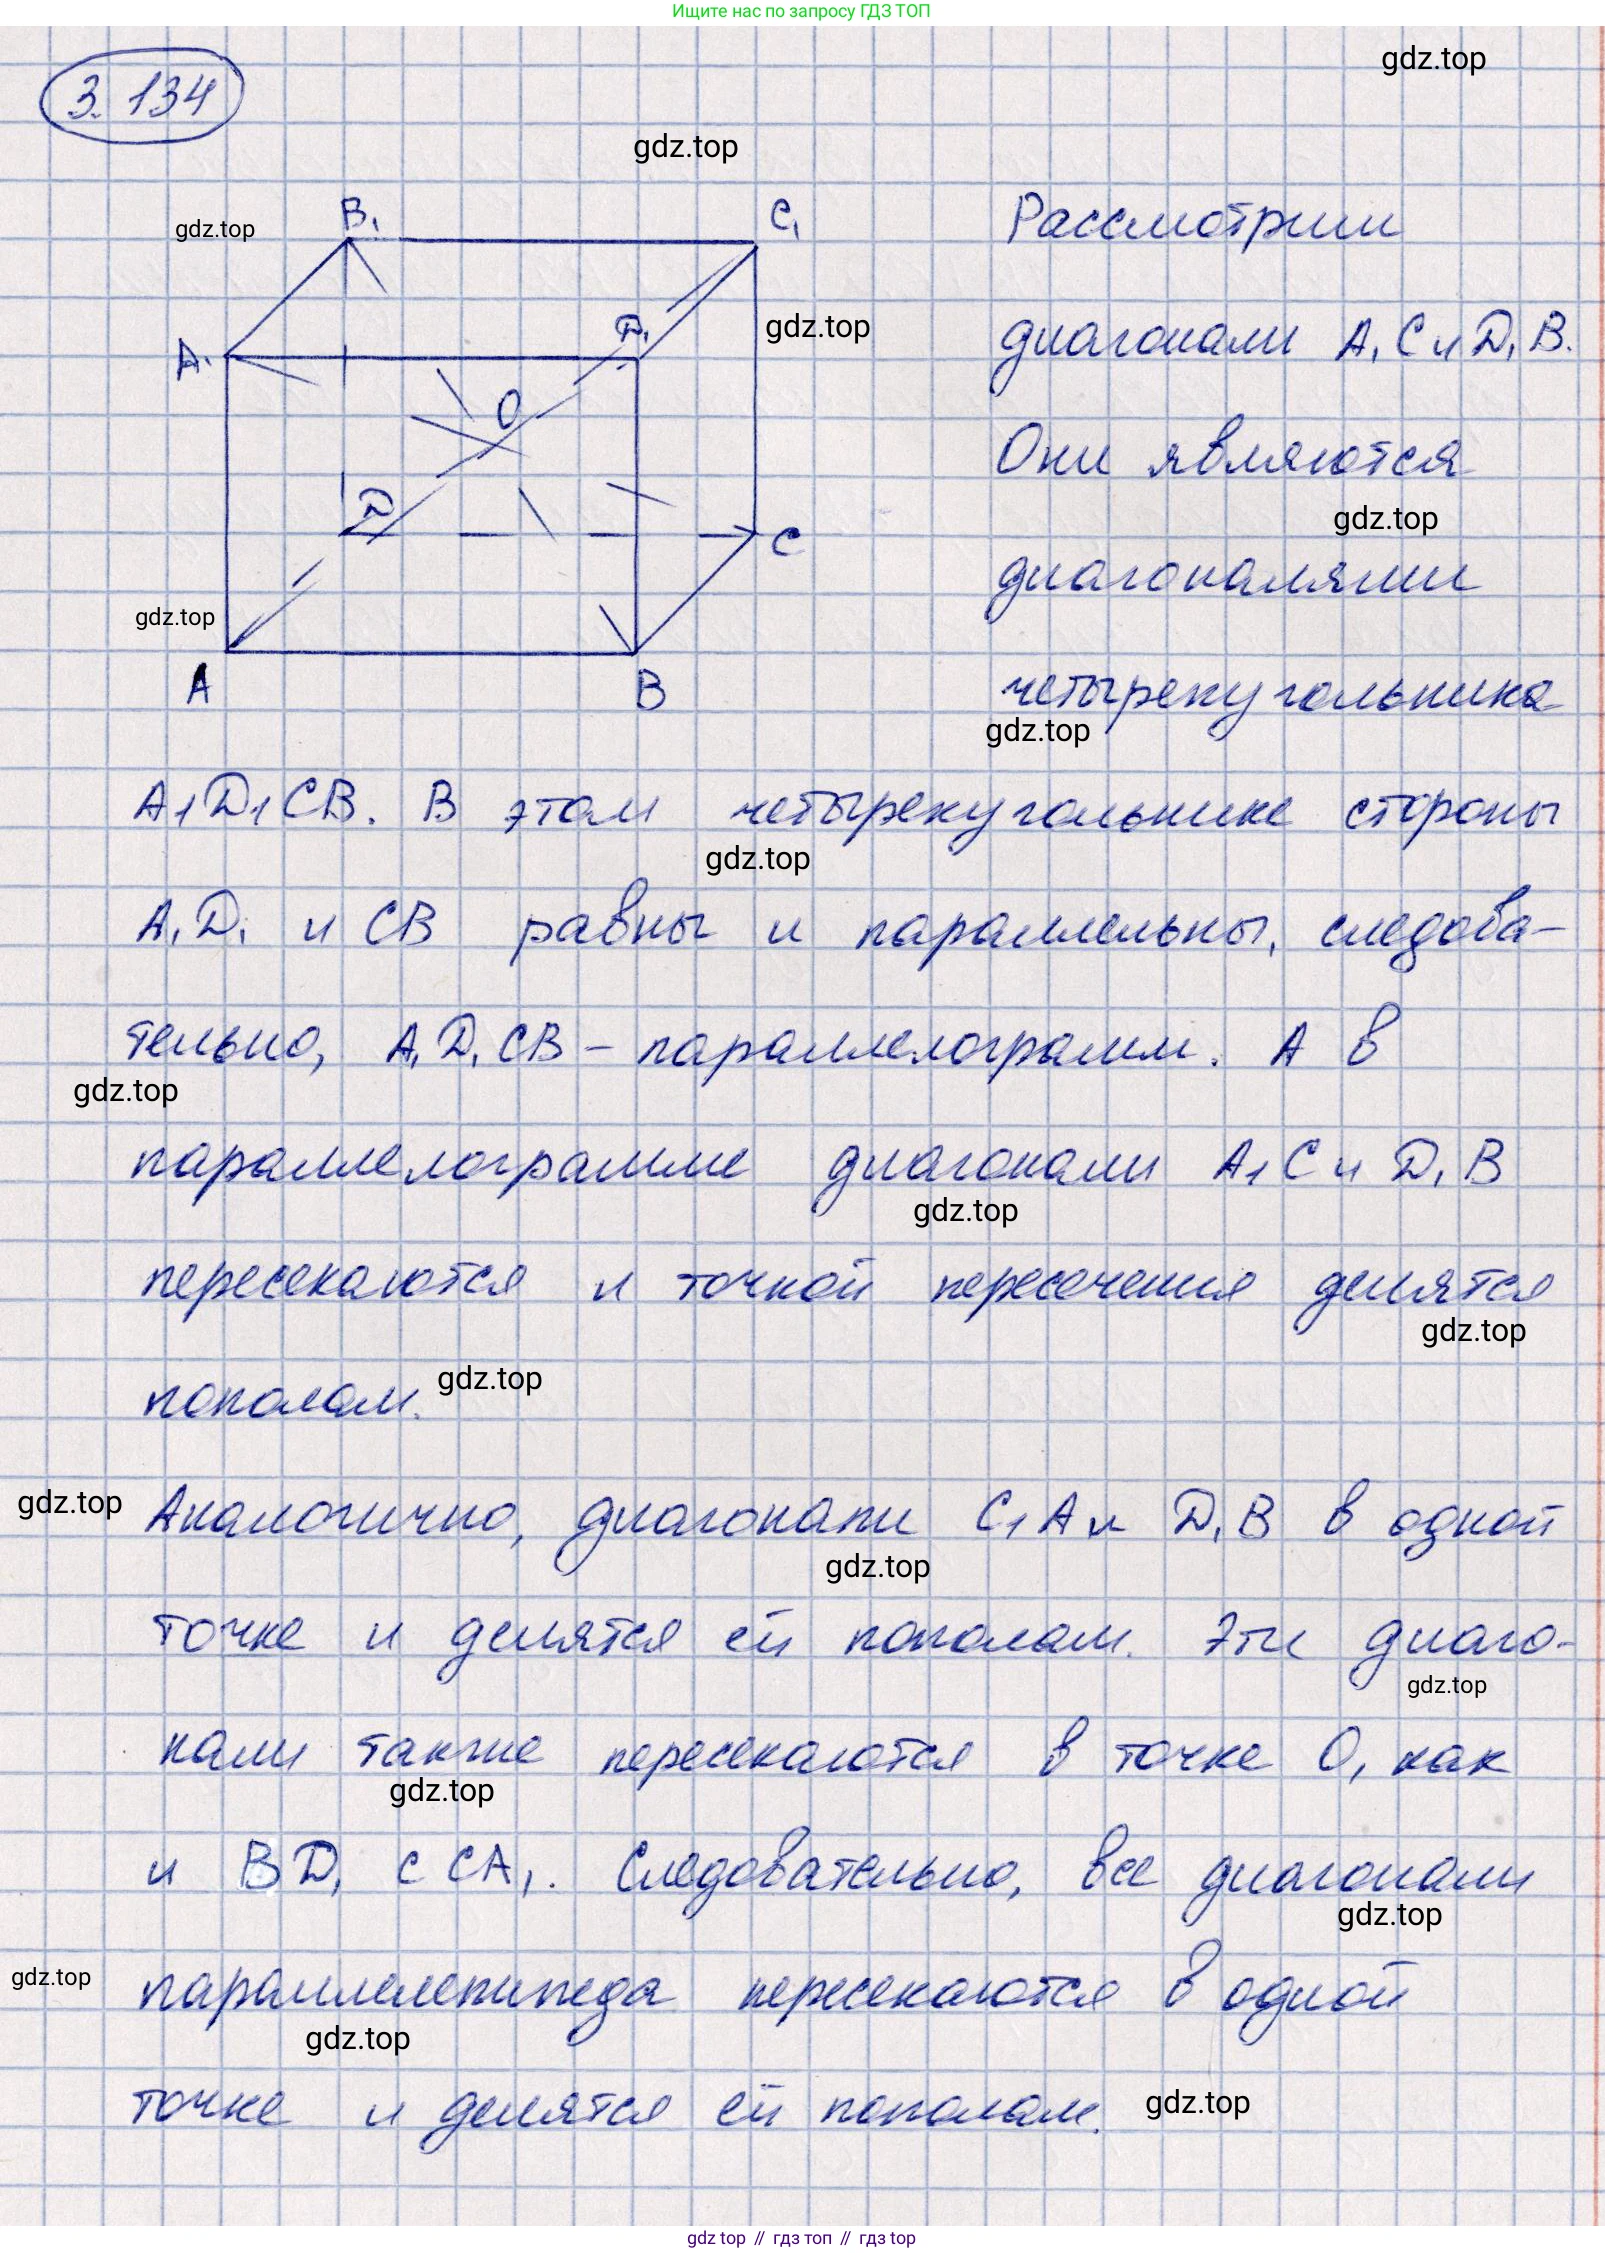 Ищите нас по запросу ГДЗ ТОП
gdz.top
3. 134
gdz.top
gdz.top
B₁
C₁
Рассмотрим
gdz.top
A₁
D₁
диагонали A₁C и D₁B.
O
Они являются
gdz.top
D
C
диагоналями
gdz.top
A
B
четырехугольника
gdz.top
A₁D₁CB. В этом четырехугольнике стороны
gdz.top
A₁D₁ и CB равны и параллельны, следова-
тельно, A₁D₁CB – параллелограмм. А в
gdz.top
параллелограмме диагонали A₁C и D₁B
gdz.top
пересекаются и точкой пересечения делятся
gdz.top
пополам.
gdz.top
gdz.top
Аналогично, диагонали C₁A и D₁B в одной
gdz.top
точке и делятся ей пополам. Эти диаго-
gdz.top
нали также пересекаются в точке O, как
gdz.top
и BD₁ с CA₁. Следовательно, все диагонали
gdz.top
gdz.top
параллелепипеда пересекаются в одной
gdz.top
точке и делятся ей пополам.
gdz.top
gdz top // гдз топ // гдз top